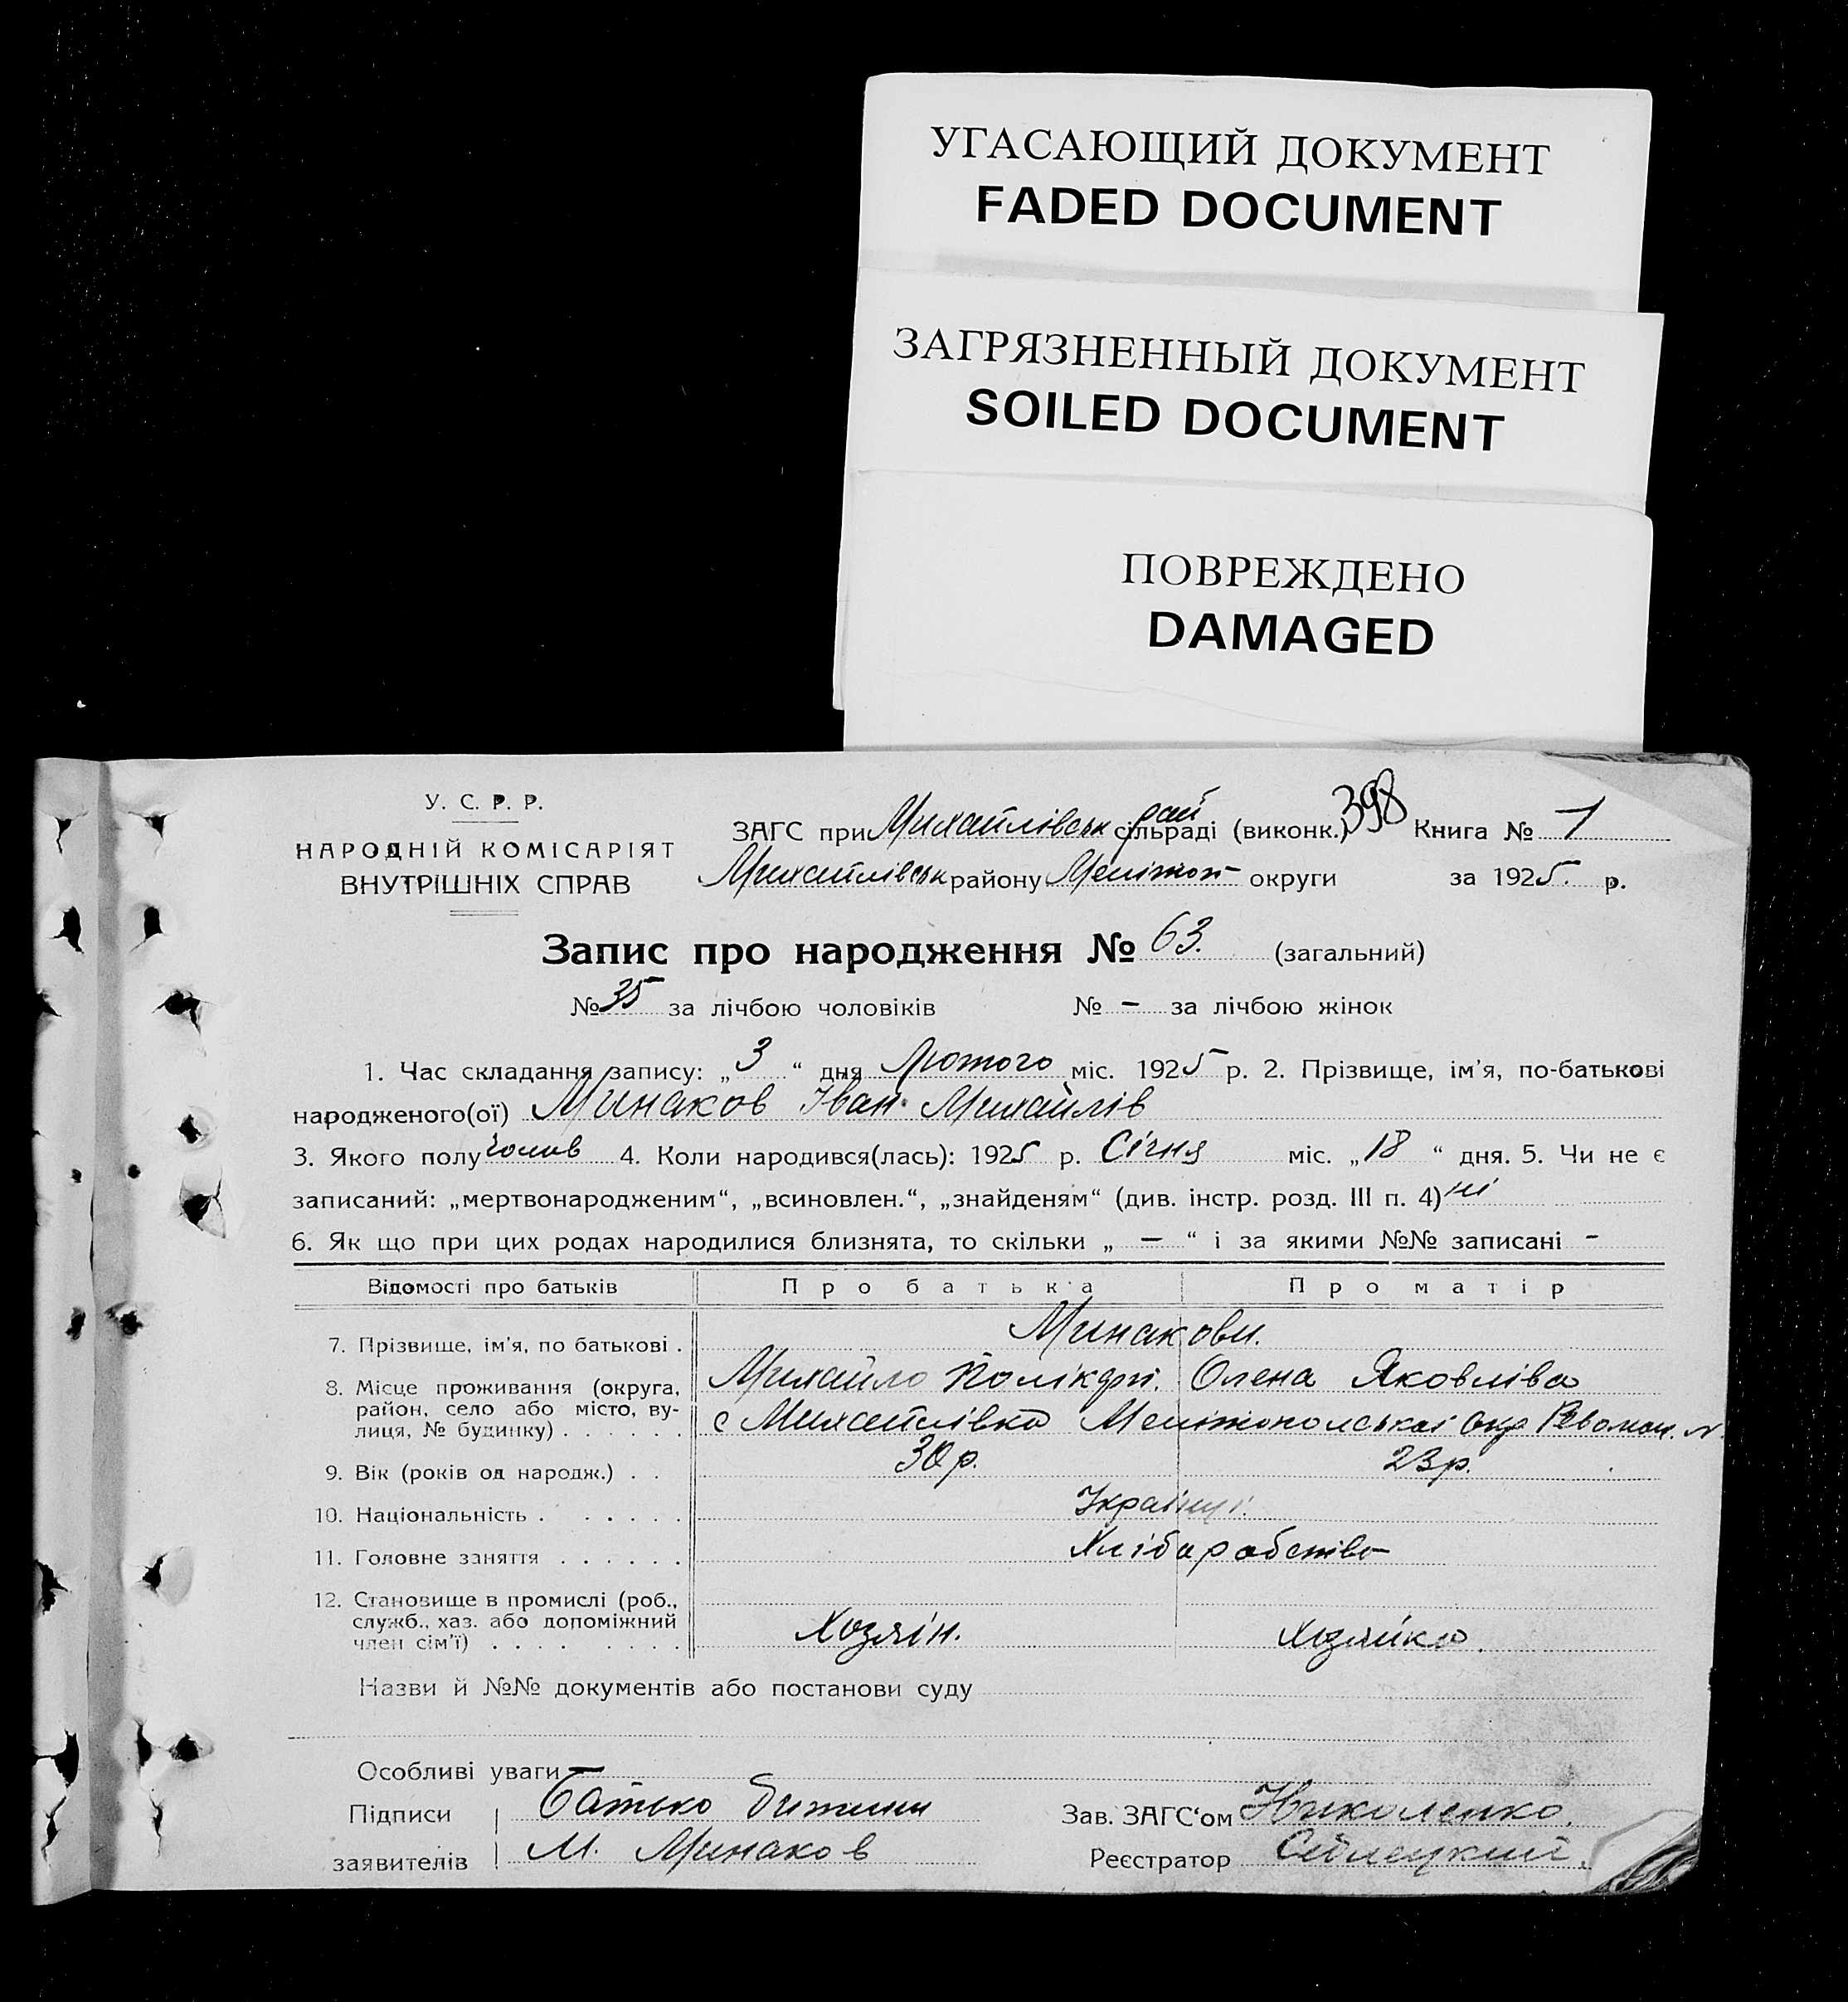 УГАСАЮЩИЙ ДОКУМЕНТ
FADED DOCUMENT
ЗАГРЯЗНЕННЫЙ ДОКУМЕНТ
SOILED DOCUMENT
ПОВРЕЖДЕНО
DAMAGED
У. С. Р. Р.
НАРОДНІЙ КОМІСАРІЯТ
ВНУТРІШНІХ СПРАВ
398
ЗАГС при Михайлівськ рай сільраді (виконк.) Книга № 1
Михайлівськ району Мелітоп округи за 1925. р.
Запис про народження № 63. (загальний)
№ 35 за лічбою чоловіків № – за лічбою жінок
1. Час складання запису: „ 3 “ дня Лютого міс. 1925 р. 2. Прізвище, ім'я, по-батькові
народженого(ої) Минаков Іван Михайлів
3. Якого полу чолов 4. Коли народився(лась): 1925 р. Січня міс. „ 18 “ дня. 5. Чи не є
записаний: „мертвонародженим“, „всиновлен.“, „знайденям“ (див. інстр. розд. III п. 4) ні
6. Як що при цих родах народилися близнята, то скільки „ – “ і за якими №№ записані -
Відомості про батьків Про батька Про матір
7. Прізвище, ім'я, по батькові . Минакови.
8. Місце проживання (округа, Михайло Полікарп. Олена Яковліва
район, село або місто, ву-
лиця, № будинку) . . . . . . с Михайлівка Мелітопольської окр
9. Вік (років од народж.) . . 30 р. 23 р.
10. Національність . . . . . . Українці.
11. Головне заняття . . . . . . Хліборобство
12. Становище в промислі (роб.,
служб., хаз. або допоміжний
член сім'ї) . . . . . . . . Хозяін. Хозяйка.
Назви й №№ документів або постанови суду
Особливі уваги
Підписи Батько дитини Зав. ЗАГС‘ом Николенко.
заявителів М. Минаков Реєстратор